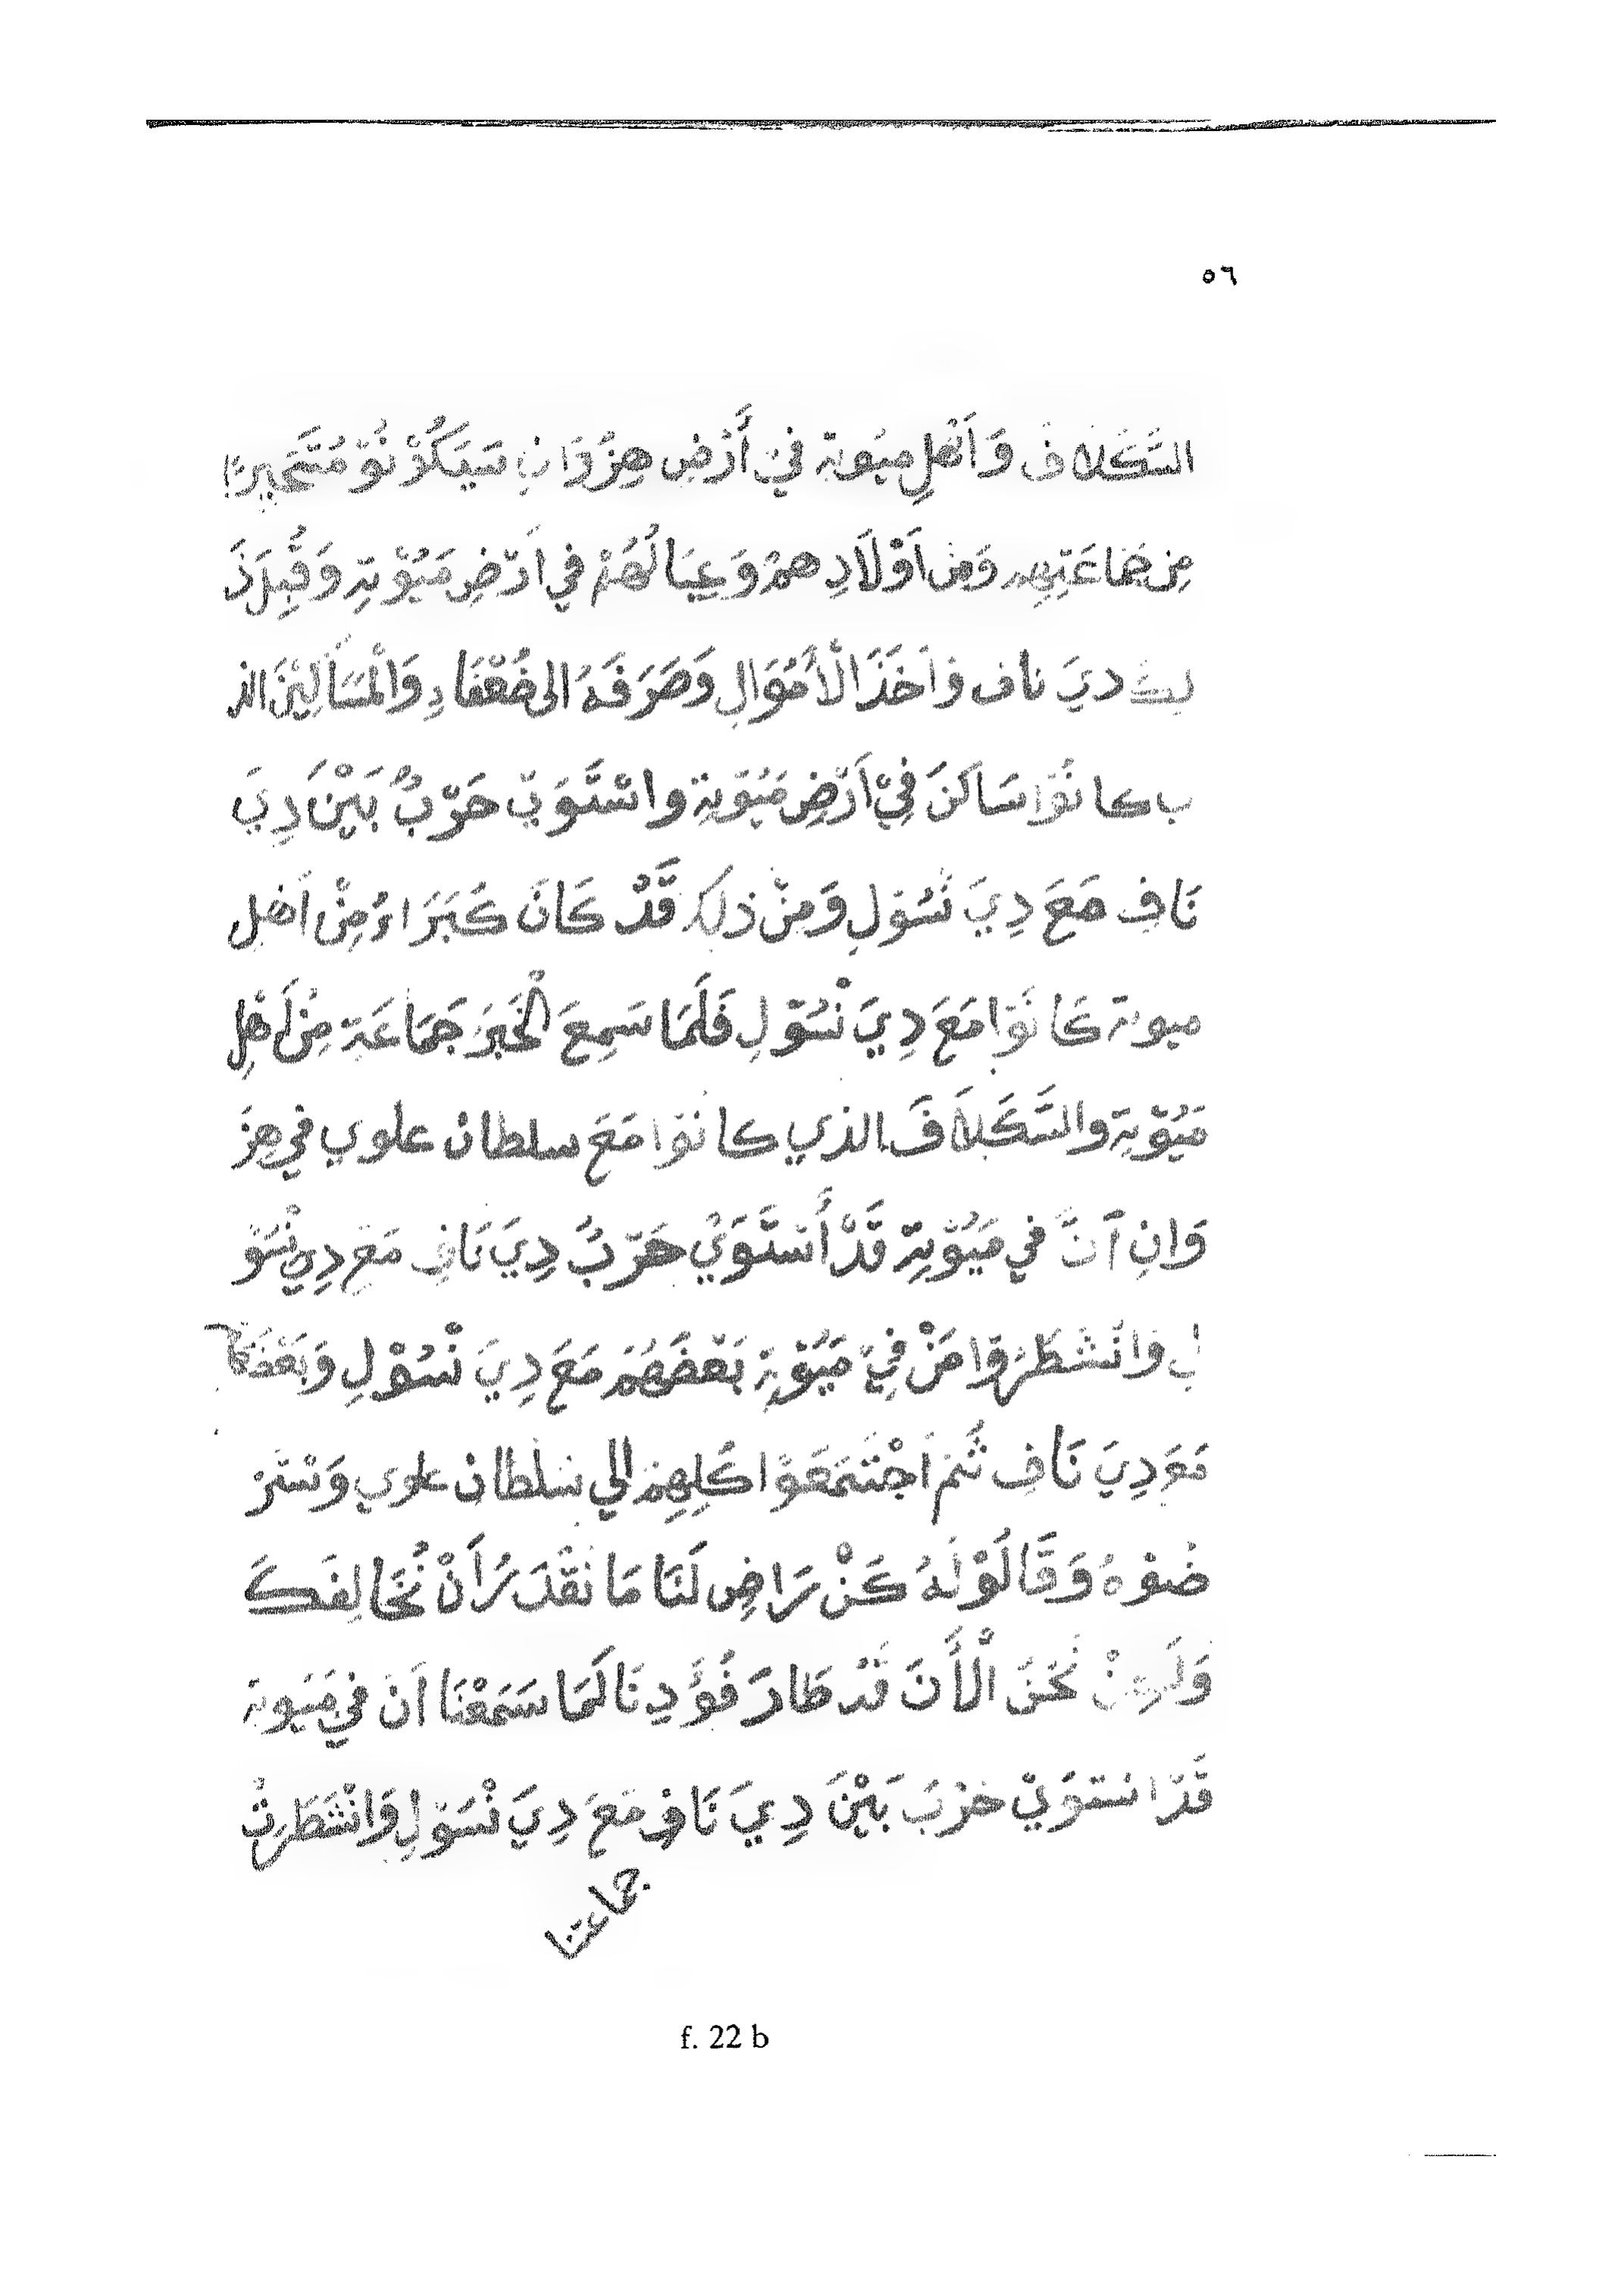 ٥٦
السَّكَلَافَ وَاَهْلِ مَيُوتة فِي أَرْضِ هِزْوَانِ سَيَكُوْنُوْ مُتَحَيِرًا
مِن جَمَاعَتِهِم وَمِن اَوْلَادِهِمْ وَعِيَالُهُمْ فِي اَرْضِ مَيُوْتِةِ وَقَبِلَ ذَ
لِكَ دِيَ نَاف وَاَخَذَ الْأَمْوَالِ وَصَرَفَهُ الى ضُعْفَاءِ وَالْمَسَاَلِيْنَ الذ
ي كانُوْا سَاكَنَ فِيْ اَرْضِ مَيُوْتِة واسْتَوَيْ حَرْبُ بَيْنَ دِيَ
نَافِ مَعَ دِيَ نْسُوْلِ وَمِنْ ذلِكَ قَدْ كَانَ كَبَرَاءُ مِنْ اَهْلِ
ميوتة كَانُوْا مَعَ دِيَ نْسُوْلِ فَلَمَا سَمِعَ الْخَبَرَ جَمَاعَةِ مِنْ اَهْلِ
مَيُوْتِة والسَّكَلَافَ الذي كانُوْا مَعَ سلطان علوي في هِزْ
وَانِ اَنَّ فِي مَيُوْتِةِ قَدْ أَسْتَوَيْ حَرْبُ دِيَ نَافِ مَعَ دِيَ نْسُوْ
لِ وَانْشَطَرُوا مَنْ فِيْ مَيُوْتِة بَعْضَهُمْ مَعَ دِيَ نْسُوْلِ وَبَعْضَهُمْ
مَعَ دِيَ نَافِ ثُمَ اَجْتَمَعَوْا كُلِهِمْ الي سُلطان علوي وَسْتَرْ
ضُوْهُ وَقَالُوْ لَهُ كَنْ رَاضِ لَنَا مَا نَقْدَرُ اَنْ نُخَالِفَكَ
وَلَكِنْ نَحْنُ الْأَنَ قَدْ طَارَ فُؤَدِنَا لَمَا سَمَعْنَا اَنَ فِي مَيُوتة
قَدْ اسْتَوَيْ حَرْبَ بَيْنَ دِيَ نَافِ مَعَ دِيَ نْسُوْلِ وَانْشَطَرِتْ
جماعتنا
f. 22 b